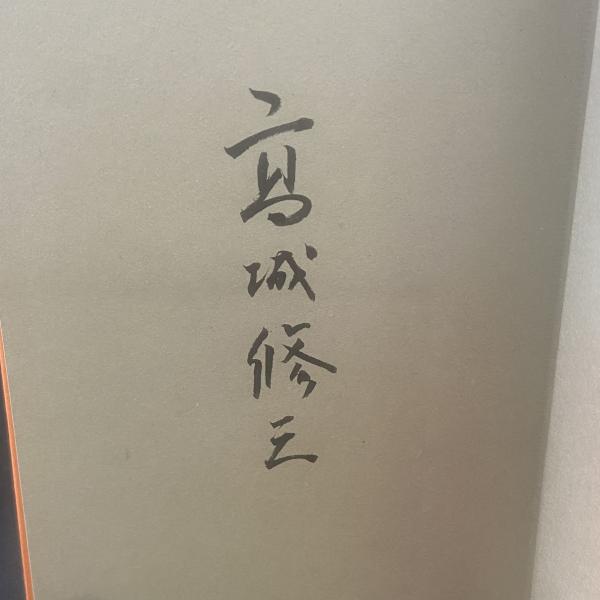 高城修三